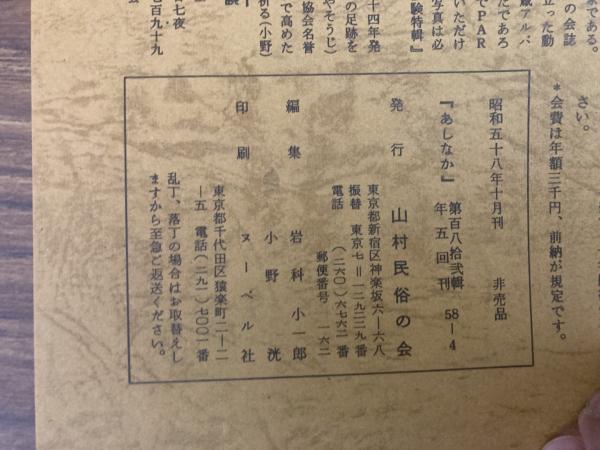 さい。
*会費は年額三千円、前納が規定です。
昭和五十八年十月刊　非売品
『あしなか』　第百八拾弐輯　58―4
年五回刊
発行　山村民俗の会
東京都新宿区神楽坂六―六八
振替　東京七＝一二九二二九番
電話　(二六〇)六七六二番
郵便番号　一六二
編集　岩科小一郎
小野　洸
印刷　ヌーベル社
東京都千代田区猿楽町二―二
―五　電話(二九二)七〇〇一番
乱丁、落丁の場合はお取替えし
ますから至急ご返送ください。
である。
蔵アルバ
の会誌
立った動
でPAR
たであろ
いただけ
写真は必
験特輯』
十四年発
の足跡を
やそうじ)
協会名誉
で高めた
祈る(小野)
十七夜
七百九十九